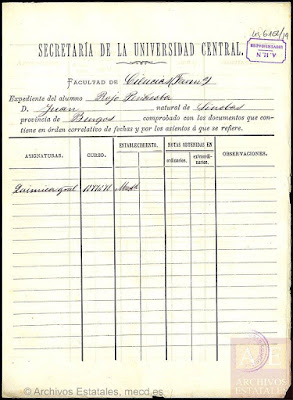 SECRETARÍA DE LA UNIVERSIDAD CENTRAL.
FACULTAD DE Ciencias
Expediente del alumno Rojo
D. Juan natural de
provincia de Burgos comprobado con los documentos que con-
tiene en órden correlativo de fechas y por los asientos á que se refiere.
ASIGNATURAS. CURSO. ESTABLECIMIENTO. NOTAS OBTENIDAS EN OBSERVACIONES.
ordinarios. extraordi-
narios.
Química gral
© Archivos Estatales, mecd.es